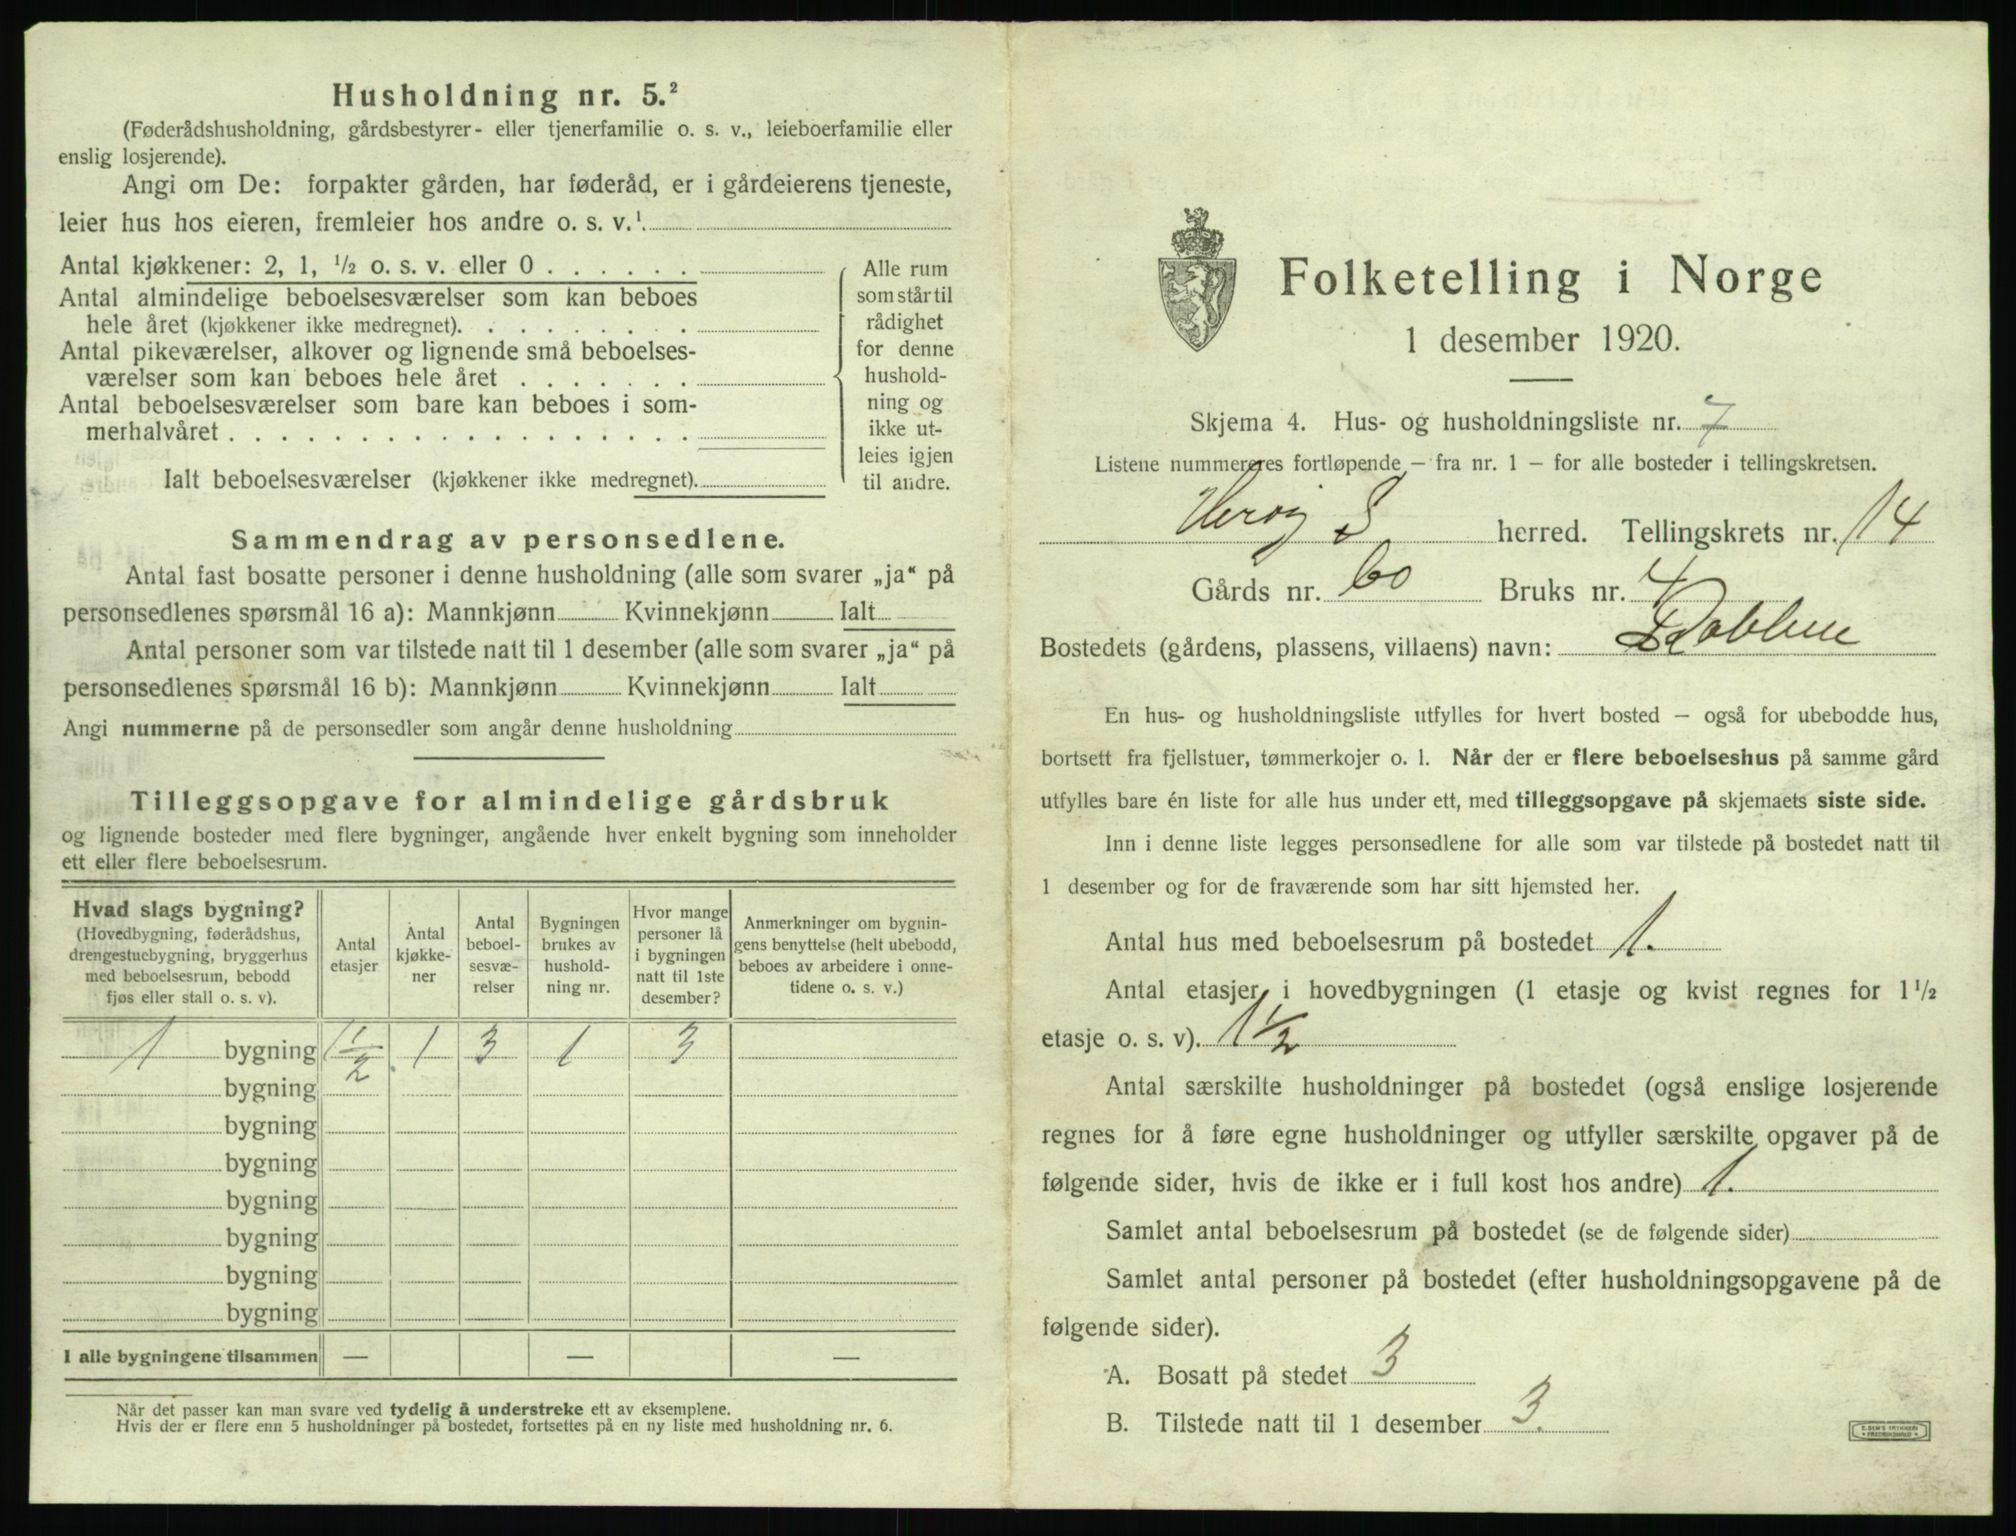 Husholdning nr. 5.²
(Føderådshusholdning, gårdsbestyrer- eller tjenerfamilie o. s. v., leieboerfamilie eller
enslig losjerende).
Angi om De: forpakter gården, har føderåd, er i gårdeierens tjeneste,
leier hus hos eieren, fremleier hos andre o. s. v.¹
Antal kjøkkener: 2, 1, ½ o. s. v. eller 0 . . . . . .
Antal almindelige beboelsesværelser som kan beboes
hele året (kjøkkener ikke medregnet). . . . . . . . .
Antal pikeværelser, alkover og lignende små beboelses-
værelser som kan beboes hele året . . . . . . .
Antal beboelsesværelser som bare kan beboes i som-
merhalvåret . . . . . . . . . . . . . . . . . .
Ialt beboelsesværelser (kjøkkener ikke medregnet).
Alle rum
som står til
rådighet
for denne
hushold-
ning og
ikke ut-
leies igjen
til andre.
Sammendrag av personsedlene.
Antal fast bosatte personer i denne husholdning (alle som svarer „ja“ på
personsedlenes spørsmål 16 a): Mannkjønn Kvinnekjønn Ialt
Antal personer som var tilstede natt til 1 desember (alle som svarer „ja“ på
personsedlenes spørsmål 16 b): Mannkjønn Kvinnekjønn Ialt
Angi nummerne på de personsedler som angår denne husholdning
Tilleggsopgave for almindelige gårdsbruk
og lignende bosteder med flere bygninger, angående hver enkelt bygning som inneholder
ett eller flere beboelsesrum.
Hvad slags bygning?
(Hovedbygning, føderådshus,
drengestuebygning, bryggerhus
med beboelsesrum, bebodd
fjøs eller stall o. s. v).
Antal
etasjer
Antal
kjøkke-
ner
Antal
beboel-
sesvæ-
relser
Bygningen
brukes av
hushold-
ning nr.
Hvor mange
personer lå
i bygningen
natt til 1ste
desember?
Anmerkninger om bygnin-
gens benyttelse (helt ubebodd,
beboes av arbeidere i onne-
tidene o. s. v.)
1 bygning 1½ 1 3 1 3
bygning
bygning
bygning
bygning
bygning
bygning
bygning
I alle bygningene tilsammen — — —
Når det passer kan man svare ved tydelig å understreke ett av eksemplene.
Hvis der er flere enn 5 husholdninger på bostedet, fortsettes på en ny liste med husholdning nr. 6.
Folketelling i Norge
1 desember 1920.
Skjema 4. Hus- og husholdningsliste nr. 7
Listene nummereres fortløpende – fra nr. 1 – for alle bosteder i tellingskretsen.
Herøy S herred. Tellingskrets nr. 14
Gårds nr. 60 Bruks nr. 4
Bostedets (gårdens, plassens, villaens) navn:
En hus- og husholdningsliste utfylles for hvert bosted – også for ubebodde hus,
bortsett fra fjellstuer, tømmerkojer o. l. Når der er flere beboelseshus på samme gård
utfylles bare én liste for alle hus under ett, med tilleggsopgave på skjemaets siste side.
Inn i denne liste legges personsedlene for alle som var tilstede på bostedet natt til
1 desember og for de fraværende som har sitt hjemsted her.
Antal hus med beboelsesrum på bostedet 1.
Antal etasjer i hovedbygningen (1 etasje og kvist regnes for 1½
etasje o. s. v). 1½
Antal særskilte husholdninger på bostedet (også enslige losjerende
regnes for å føre egne husholdninger og utfyller særskilte opgaver på de
følgende sider, hvis de ikke er i full kost hos andre) 1.
Samlet antal beboelsesrum på bostedet (se de følgende sider)
Samlet antal personer på bostedet (efter husholdningsopgavene på de
følgende sider).
A. Bosatt på stedet 3
B. Tilstede natt til 1 desember 3.